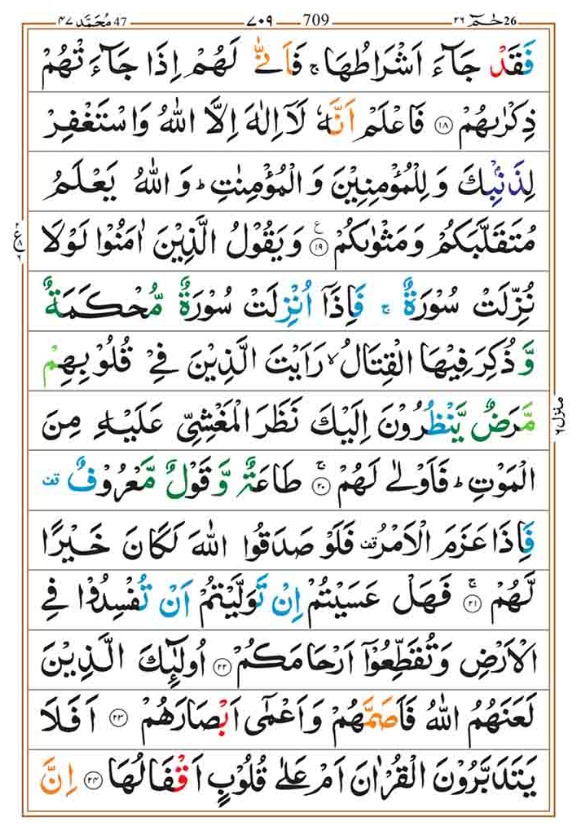 محمد ٤٧ 47 ٧٠٩ 709 حٰمٓ ٢٦ 26
فَقَدْ جَآءَ اَشْرَاطُهَا ۚ فَاَنّٰى لَهُمْ اِذَا جَآءَتْهُمْ
ذِكْرٰىهُمْ ۝١٨ فَاعْلَمْ اَنَّهٗ لَاۤ اِلٰهَ اِلَّا اللّٰهُ وَاسْتَغْفِرْ
لِذَنْۢبِكَ وَلِلْمُؤْمِنِيْنَ وَالْمُؤْمِنٰتِ ؕ وَاللّٰهُ يَعْلَمُ
مُتَقَلَّبَكُمْ وَمَثْوٰىكُمْ ۝١٩ وَيَقُوْلُ الَّذِيْنَ اٰمَنُوْا لَوْلَا
نُزِّلَتْ سُوْرَةٌ ۚ فَاِذَاۤ اُنْزِلَتْ سُوْرَةٌ مُّحْكَمَةٌ
وَّذُكِرَ فِيْهَا الْقِتَالُ ۙ رَاَيْتَ الَّذِيْنَ فِيْ قُلُوْبِهِمْ
مَّرَضٌ يَّنْظُرُوْنَ اِلَيْكَ نَظَرَ الْمَغْشِيِّ عَلَيْهِ مِنَ
الْمَوْتِ ؕ فَاَوْلٰى لَهُمْ ۝٢٠ۚ طَاعَةٌ وَّقَوْلٌ مَّعْرُوْفٌ قف
فَاِذَا عَزَمَ الْاَمْرُ قف فَلَوْ صَدَقُوا اللّٰهَ لَكَانَ خَيْرًا
لَّهُمْ ۝٢١ۚ فَهَلْ عَسَيْتُمْ اِنْ تَوَلَّيْتُمْ اَنْ تُفْسِدُوْا فِي
الْاَرْضِ وَتُقَطِّعُوْۤا اَرْحَامَكُمْ ۝٢٢ اُولٰٓئِكَ الَّذِيْنَ
لَعَنَهُمُ اللّٰهُ فَاَصَمَّهُمْ وَاَعْمٰۤى اَبْصَارَهُمْ ۝٢٣ اَفَلَا
يَتَدَبَّرُوْنَ الْقُرْاٰنَ اَمْ عَلٰى قُلُوْبٍ اَقْفَالُهَا ۝٢٤ اِنَّ
منزل ٦